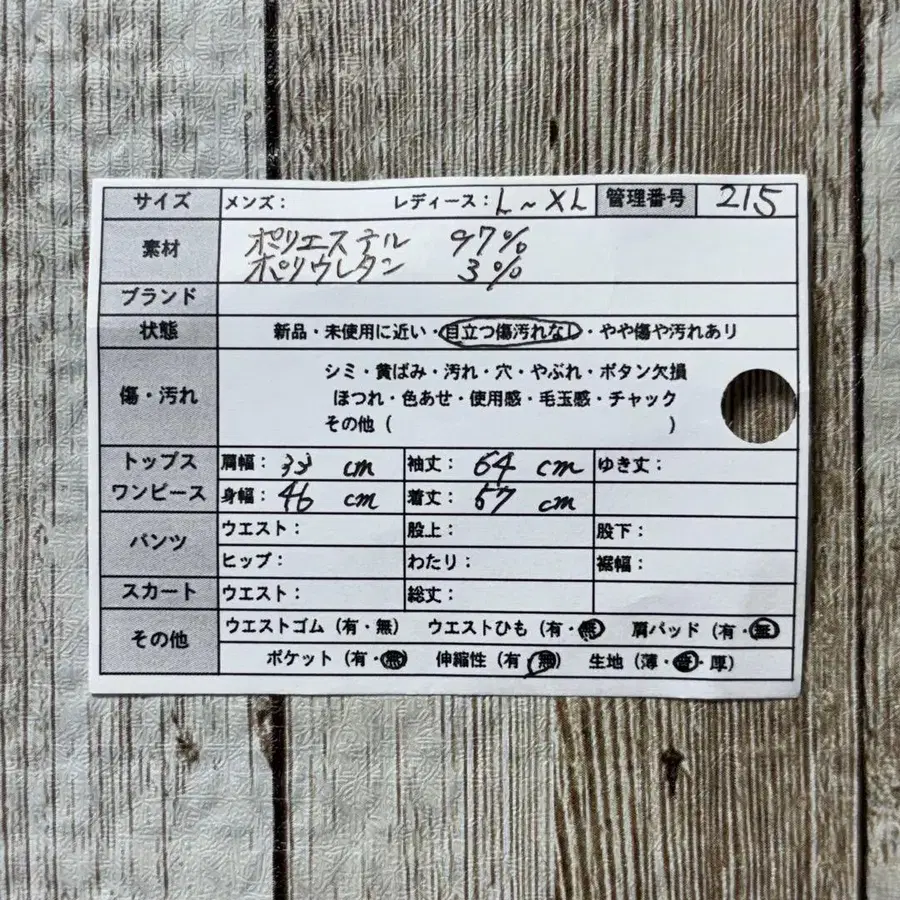 サイズ メンズ： レディース：L～XL 管理番号 215
素材 ポリエステル 97%
ポリウレタン 3%
ブランド
状態 新品・未使用に近い・目立つ傷汚れなし・やや傷や汚れあり
傷・汚れ シミ・黄ばみ・汚れ・穴・やぶれ・ボタン欠損
ほつれ・色あせ・使用感・毛玉感・チャック
その他（ ）
トップス 肩幅： cm 袖丈：64 cm ゆき丈：
ワンピース 身幅：46 cm 着丈：57 cm
パンツ ウエスト： 股上： 股下：
ヒップ： わたり： 裾幅：
スカート ウエスト： 総丈：
その他 ウエストゴム（有・無） ウエストひも（有・無） 肩パッド（有・無）
ポケット（有・無） 伸縮性（有・無） 生地（薄・普・厚）